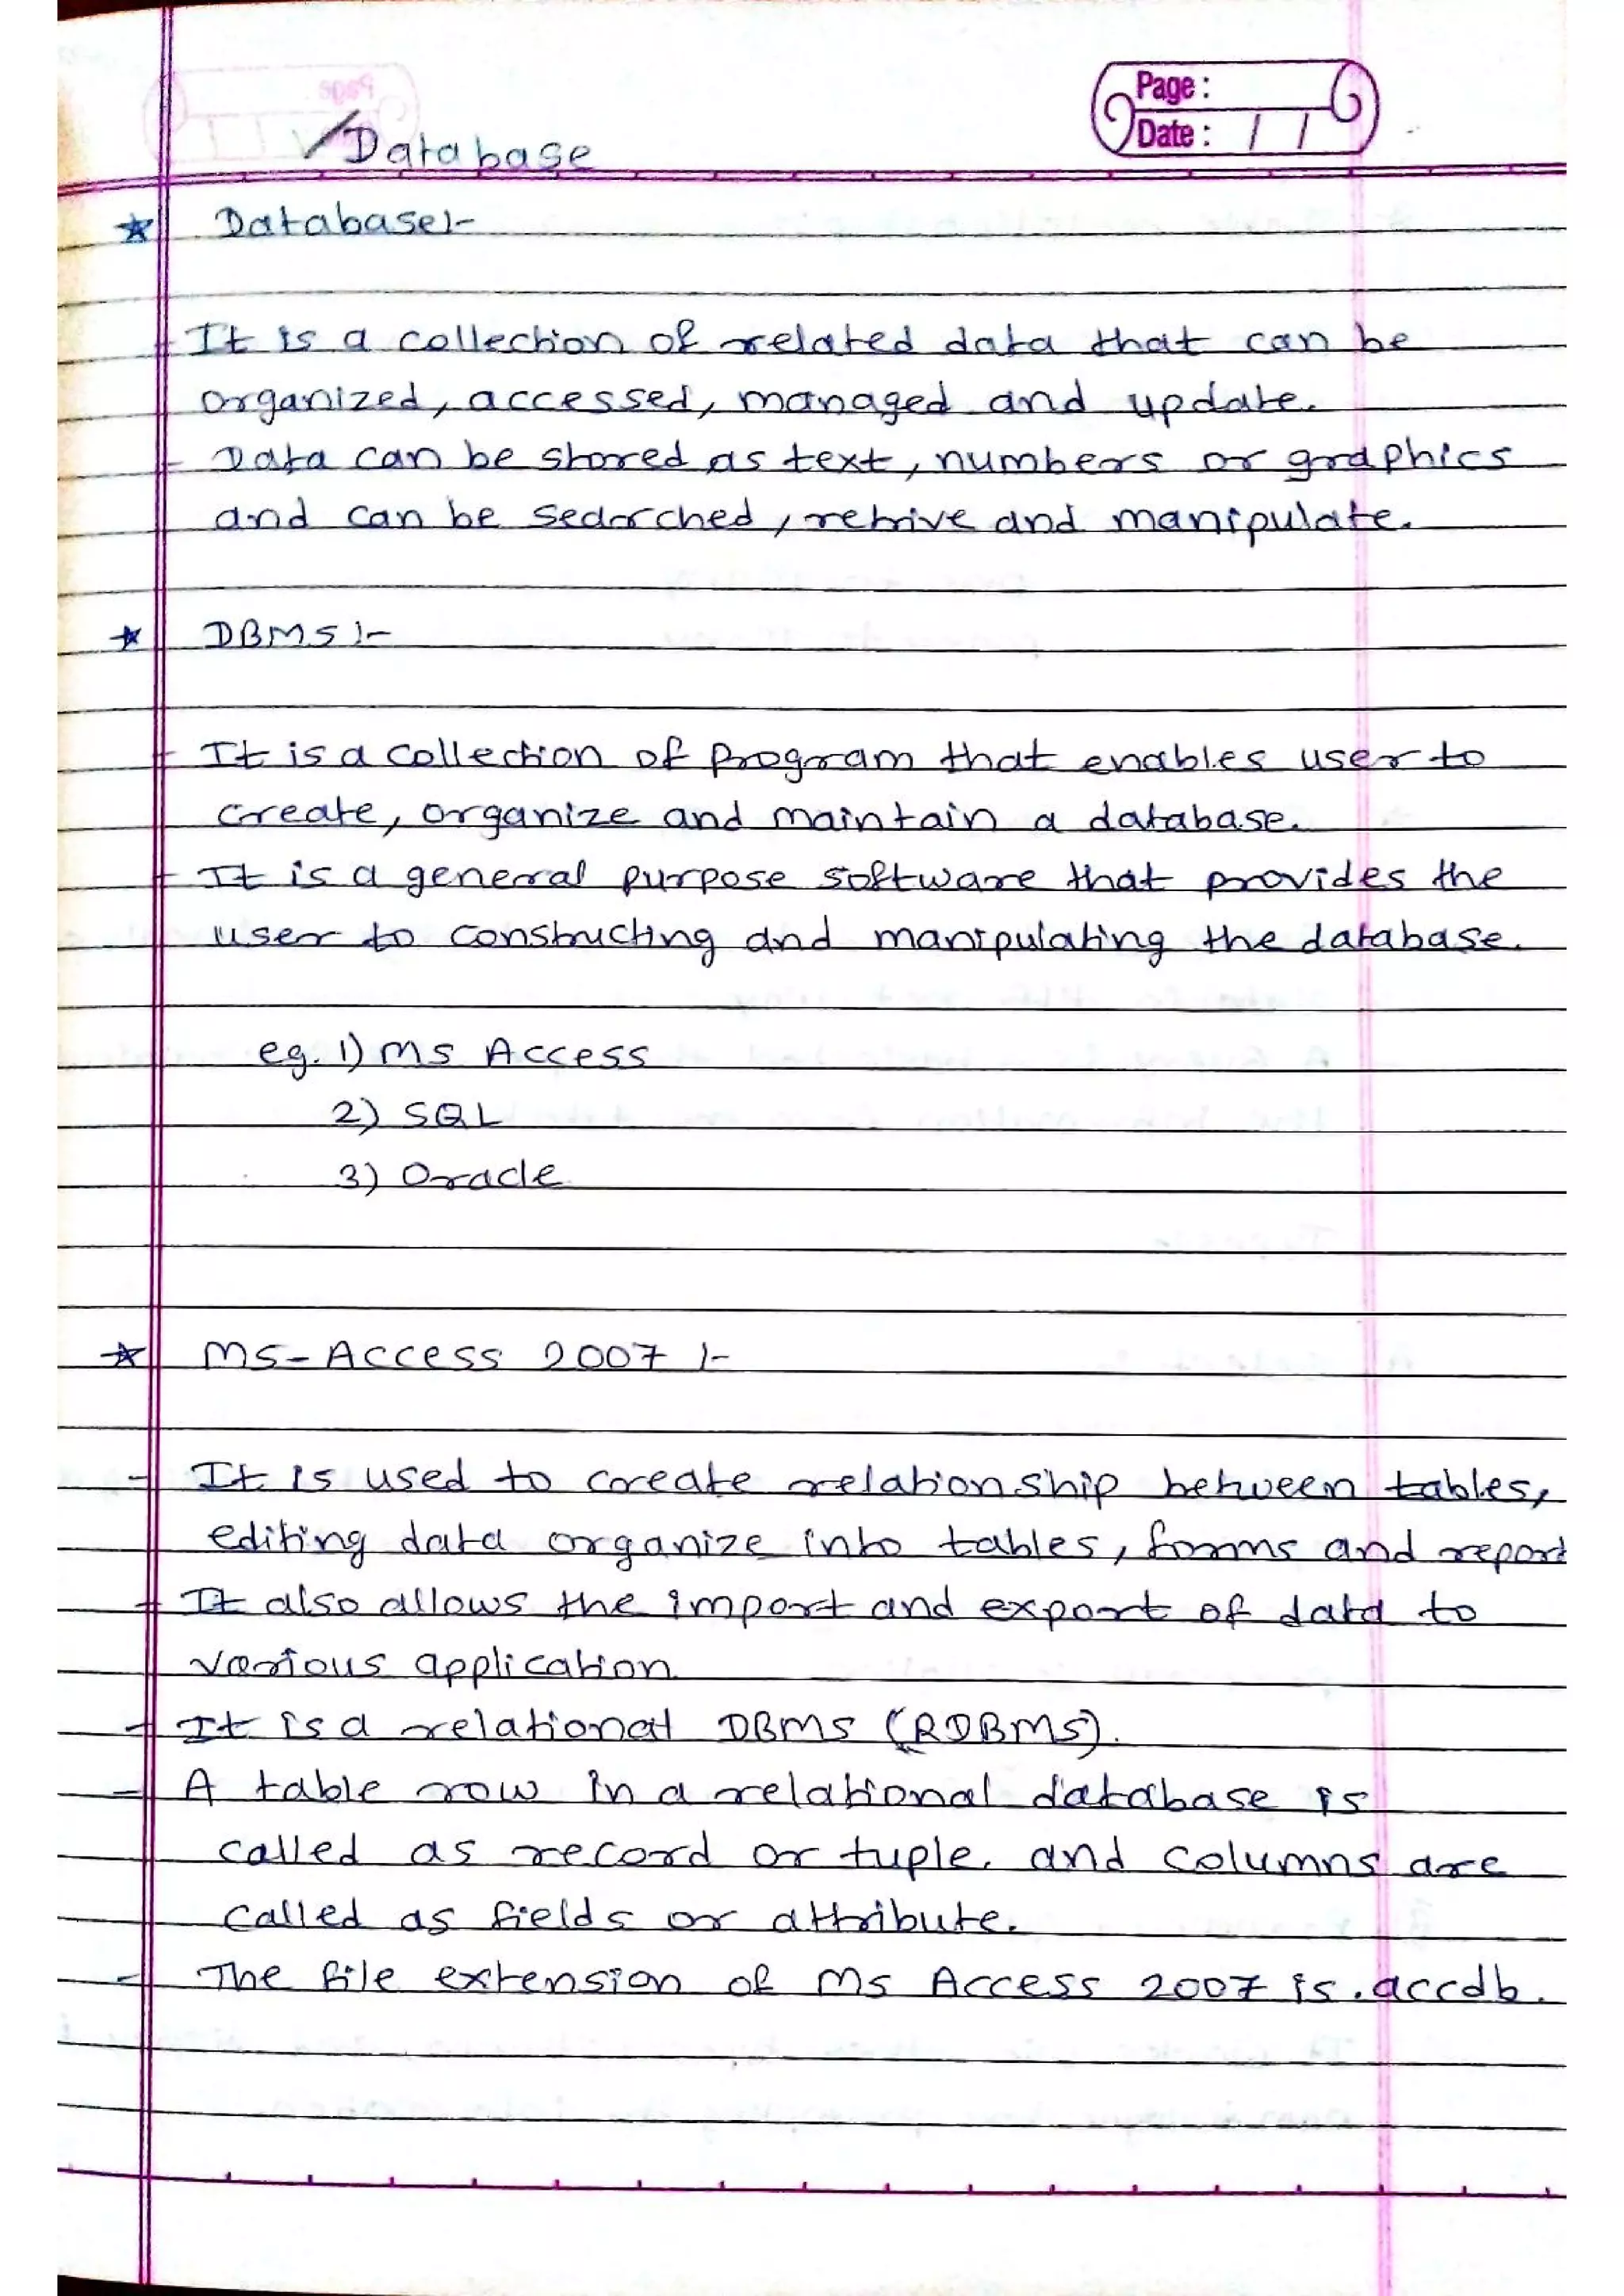 Page :
Date : / /
Database
* Database :-
- It is a collection of related data that can be
organized, accessed, managed and update.
- Data can be stored as text, numbers or graphics
and can be searched, retrive and manipulate.
* DBMS :-
- It is a collection of Program that enables user to
create, organize and maintain a database.
- It is a general purpose software that provides the
user to constructing and manipulating the database.
eg. 1) MS Access
2) SQL
3) Oracle
* MS-Access 2007 :-
- It is used to create relationship between tables,
editing data organize into tables, forms and report
- It also allows the import and export of data to
various application
- It is a relational DBMS (RDBMS).
- A table row in a relational database is
called as record or tuple. and columns are
called as fields or attribute.
- The file extension of MS Access 2007 is .accdb.